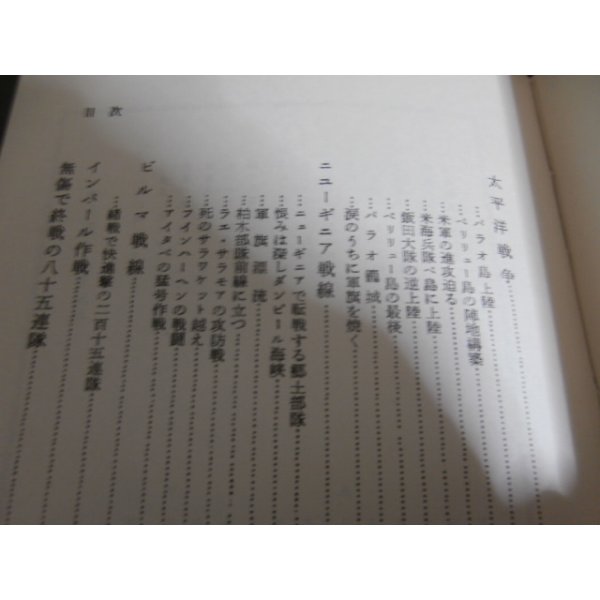 太平洋戦争
パラオ島上陸
ペリリュー島の陣地構築
米軍の進攻迫る
米海兵隊ペ島に上陸
飯田大隊の逆上陸
ペリリュー島の最後
パラオ籠城
涙のうちに軍旗を焼く
ニューギニア戦線
ニューギニアで転戦する郷土部隊
恨みは深しダンピール海峡
軍旗漂流
柏木部隊前線に立つ
ラエ・サラモアの攻防戦
死のサラワケット越え
フインハーヘンの戦闘
アイタペの猛号作戦
ビルマ戦線
緒戦で快進撃の二百十五連隊
インパール作戦
無傷で終戦の八十五連隊
目次